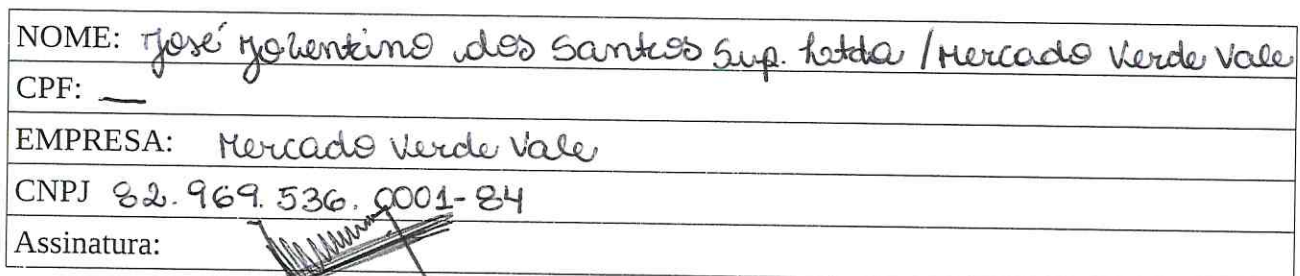 NOME: José Jolentino dos Santos Sup. Ltda / Mercado Verde Vale
CPF: —
EMPRESA: Mercado Verde Vale
CNPJ 82.969.536.0001-84
Assinatura: